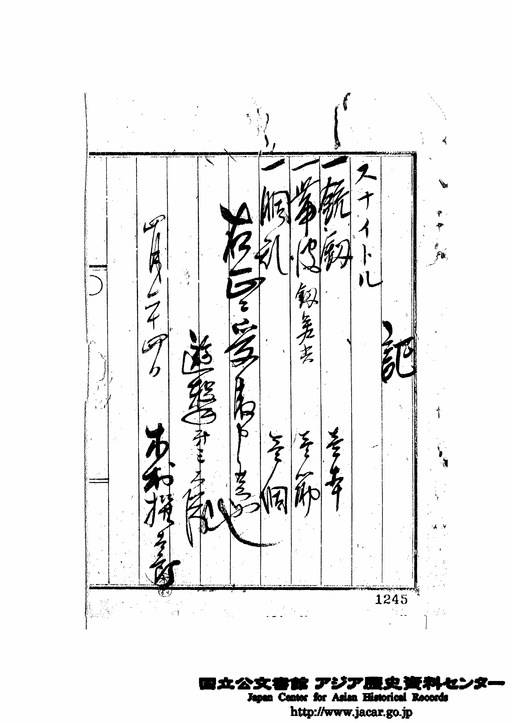 記
スナイトル
一銃劔 壱本
一帯皮劔差共 壱筋
一胴乱 壱個
右正ニ受取申候也
遊撃第三大隊
四月二十四日 木村撰
1245
国立公文書館 アジア歴史資料センター
Japan Center for Asian Historical Records
http://www.jacar.go.jp